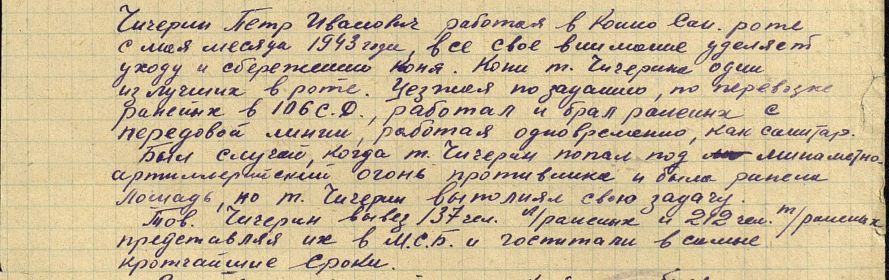 Чичерин Петр Иванович работая в Конно Сан. роте
с мая месяца 1943 года, все свое внимание уделяет
уходу и сбережению коня. Кони т. Чичерина одни
из лучших в роте. Уезжая по заданию, по перевозке
раненых в 106 С.Д., работал и брал раненых с
передовой линии, работая одновременно, как санитар.
Был случай, когда т. Чичерин попал под минаметно-
артиллерийский огонь противника и была ранена
лошадь, но т. Чичерин выполнял свою задачу.
Тов. Чичерин вывез 137 чел. л/раненых и 212 чел. т/раненых
представляя их в М.С.Б. и госпитали в самые
кротчайшие сроки.